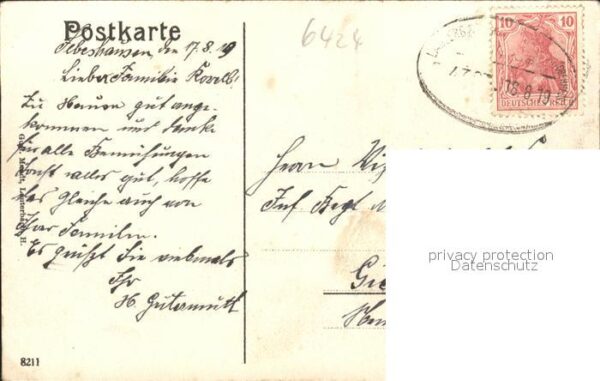 Postkarte
6424
Bebeshausen den 17.8.19
Liebe Familie
Zu Hause gut ange-
kommen und danke
für alle Bemühungen
Sonst alles gut, hoffe
das Gleiche auch von
Ihrer Familien.
Es grüßt Sie viemals
Ihr
H. Gutermuth
8211
Lauterbach, H.
10 10
DEUTSCHES REICH
18.8.19
Herrn
Inf Regt
Gie
privacy protection
Datenschutz